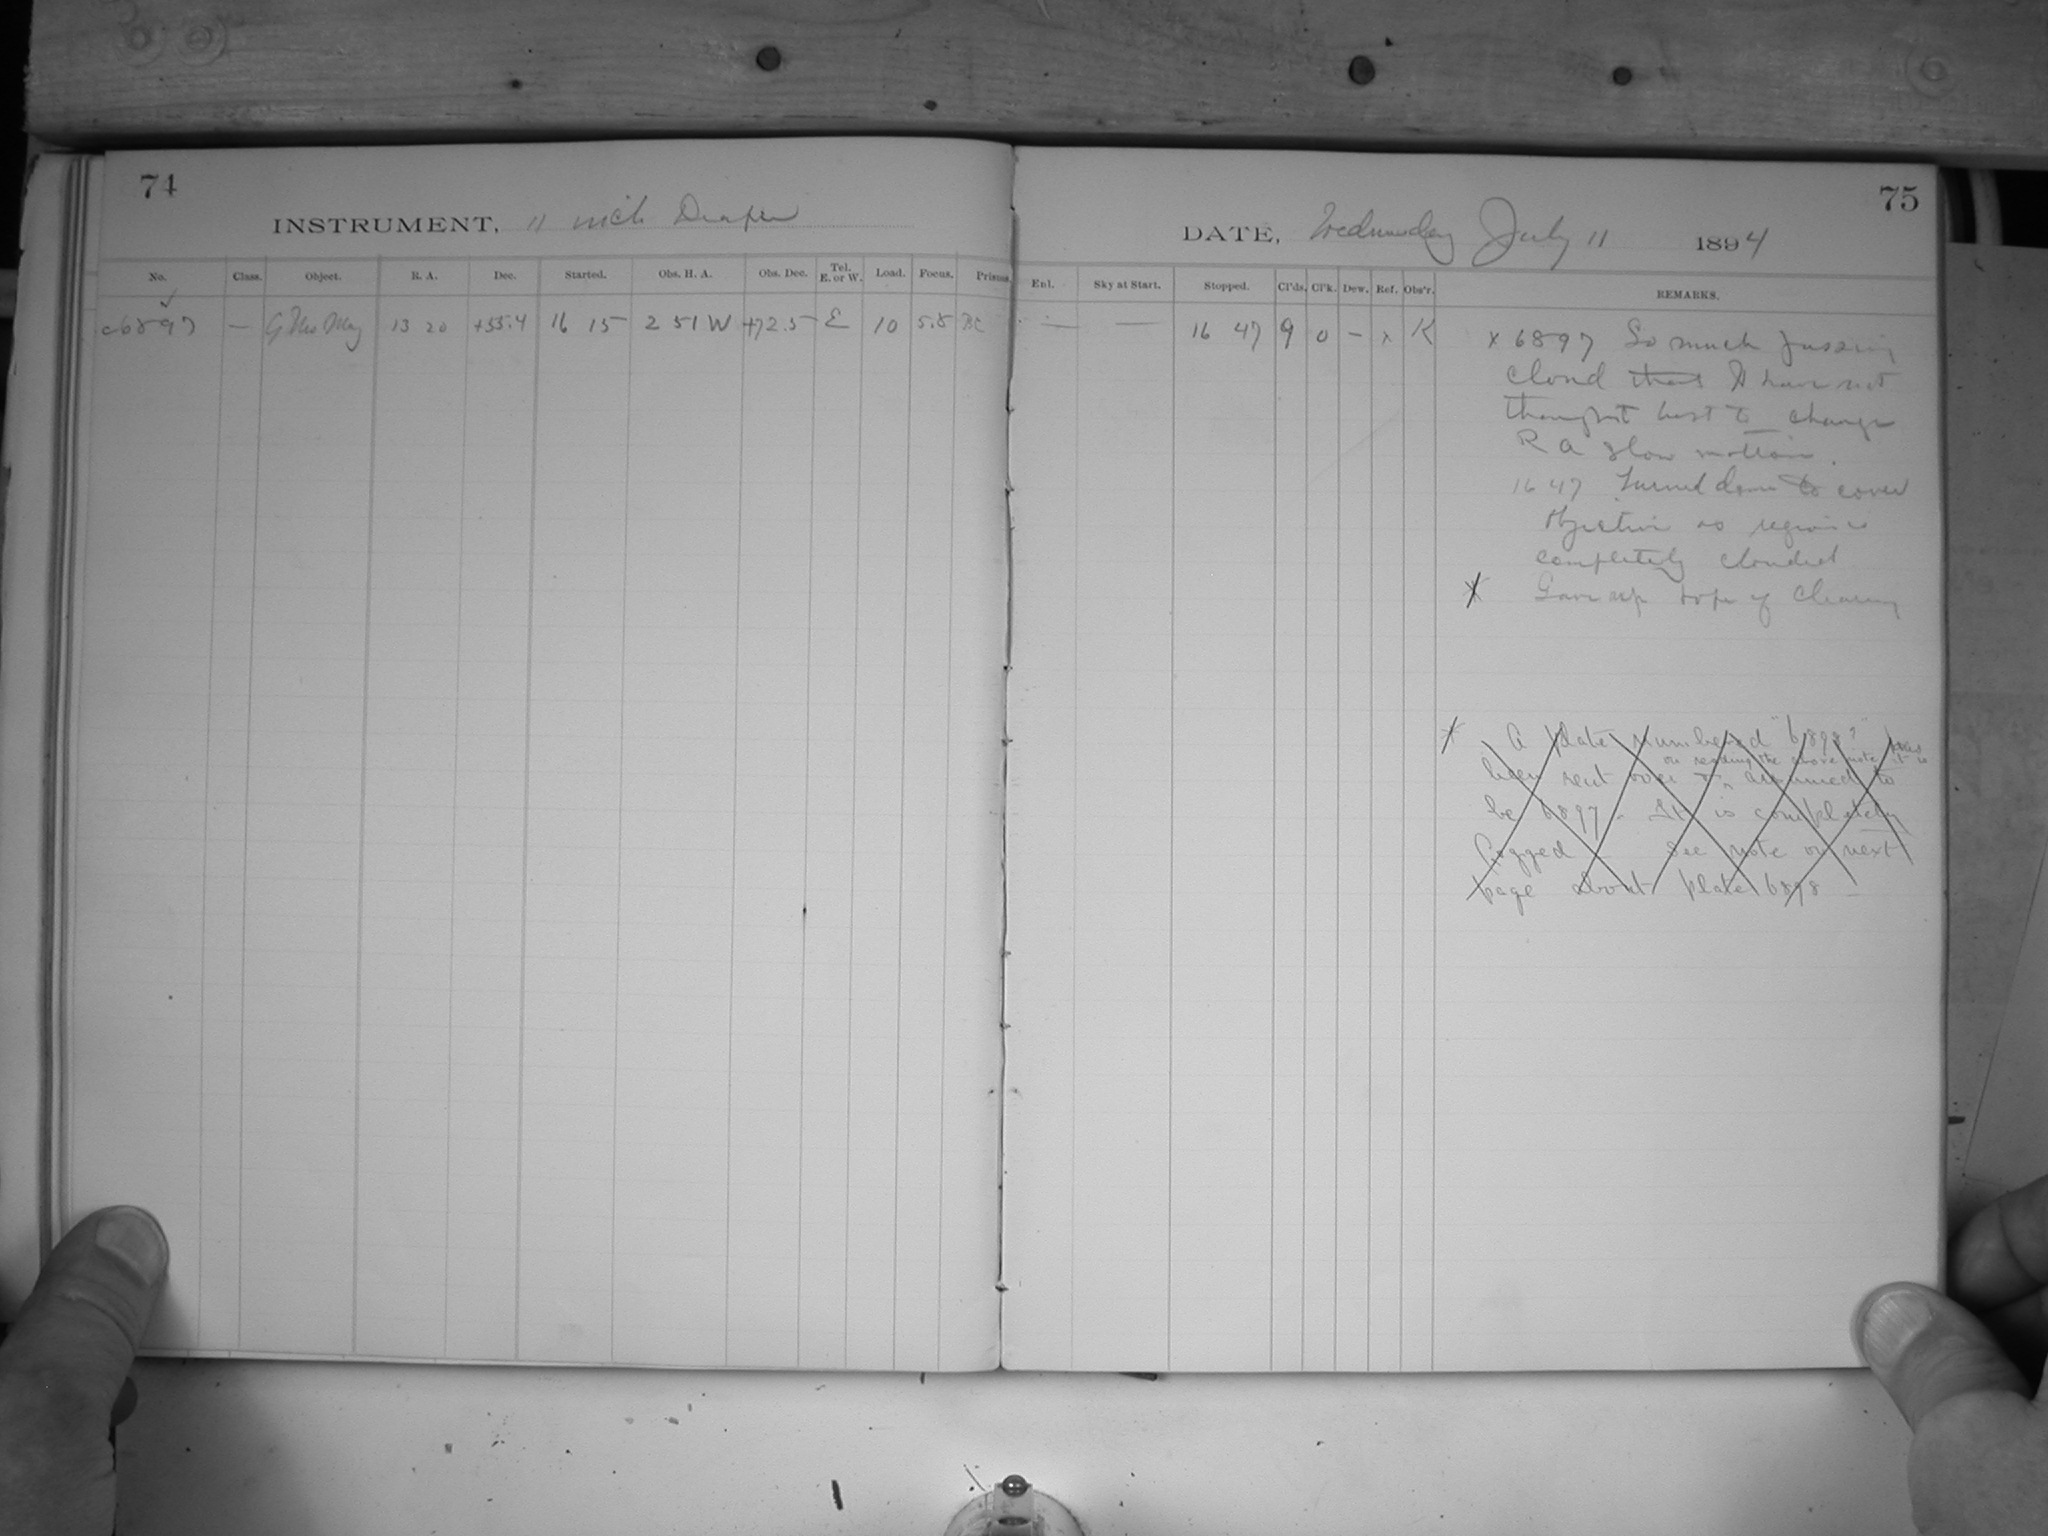 74
INSTRUMENT, 11 inch Draper
No. Class. Object. R. A. Dec. Started. Obs. H. A. Obs. Dec. Tel. E. or W. Load. Focus. Prisms.
c6897 — 13 20 +55.4 16 15 2 51 W +72.5 E 10 5.8
75
DATE, Wednesday July 11 1894
Enl. Sky at Start. Stopped. Cl'ds. Cl'k. Dew. Ref. Obs'r. REMARKS.
— — 16 47 9 0 – x K
x 6897 So much passing
cloud that I have not
thought best to change
R A slow motion.
16 47 Turned dome to cover
objective as region is
completely clouded
* Gave up hope of clearing
* A plate numbered "6898" has
been sent over & on reading the above note it is assumed to
be 6897. It is completely
fogged. See note on next
page about plate 6898 –